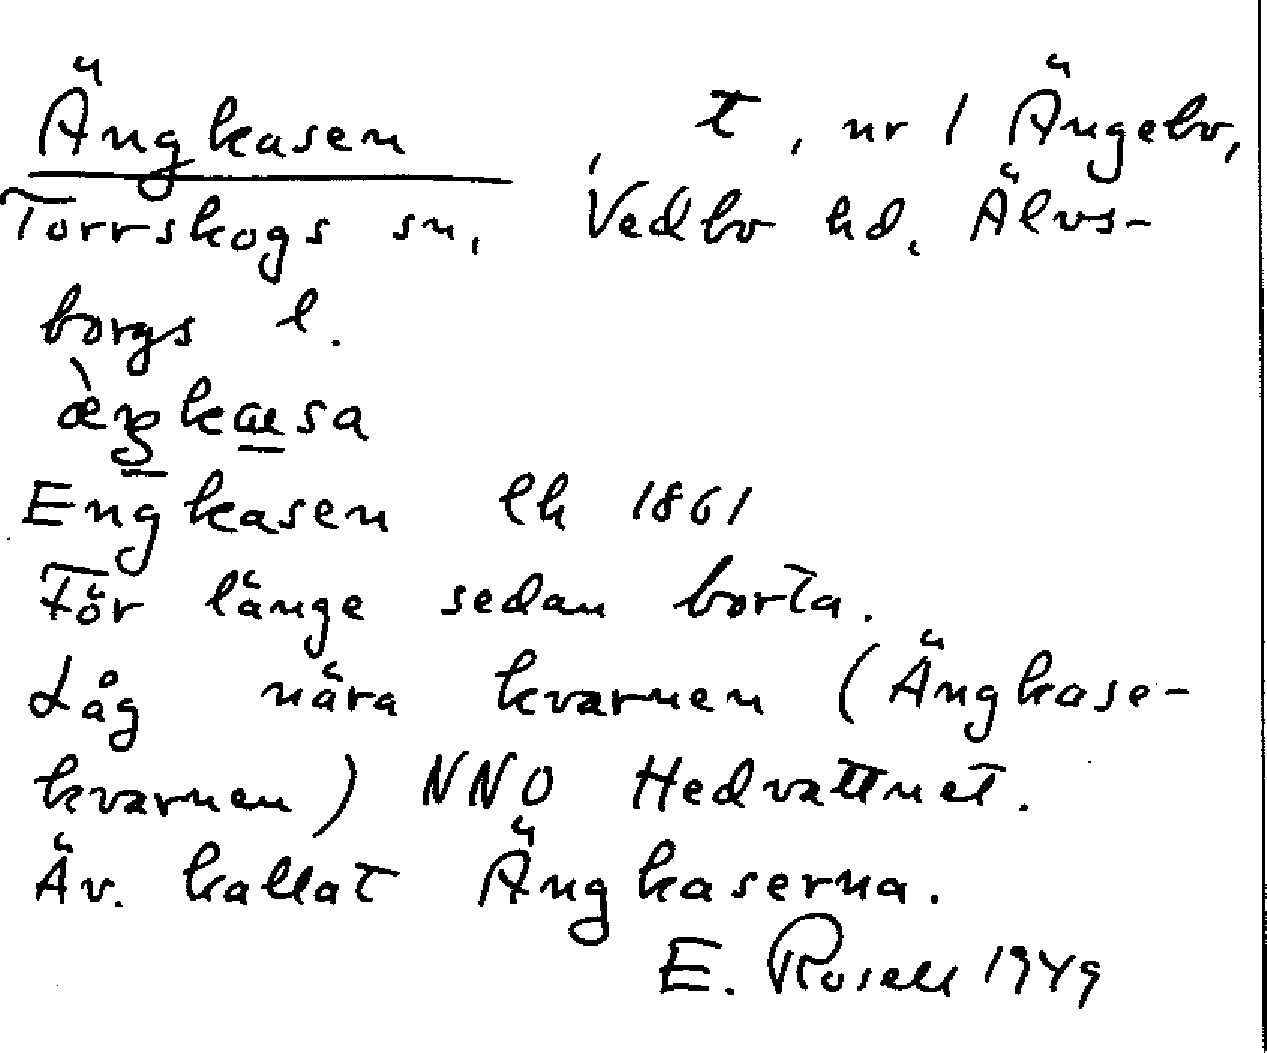 Ängkasen, t, nr 1 Ängebo,
Torrskogs sn, Vedbo hd, Älvs-
borgs l.
Engkasen lh 1861
För länge sedan borta.
Låg nära kvarnen (Ängkase-
kvarnen) NNO Hedvattnet.
Äv. kallat Ängkaserna.
E. Rosell 1949